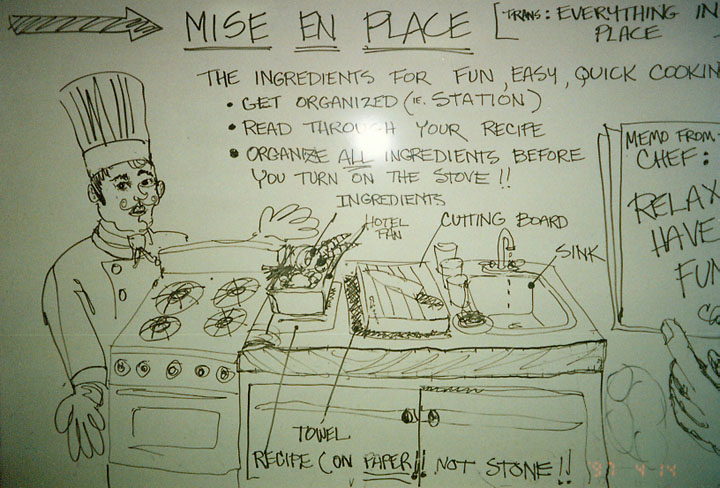 MISE EN PLACE [TRANS: EVERYTHING IN
PLACE
THE INGREDIENTS FOR FUN, EASY, QUICK COOKIN
• GET ORGANIZED (IE. STATION)
• READ THROUGH YOUR RECIPE
• ORGANIZE ALL INGREDIENTS BEFORE
YOU TURN ON THE STOVE!!
INGREDIENTS
HOTEL
PAN
CUTTING BOARD
SINK
MEMO FROM
CHEF:
RELAX
HAVE
FUN
TOWEL
RECIPE (ON PAPER!! NOT STONE!!